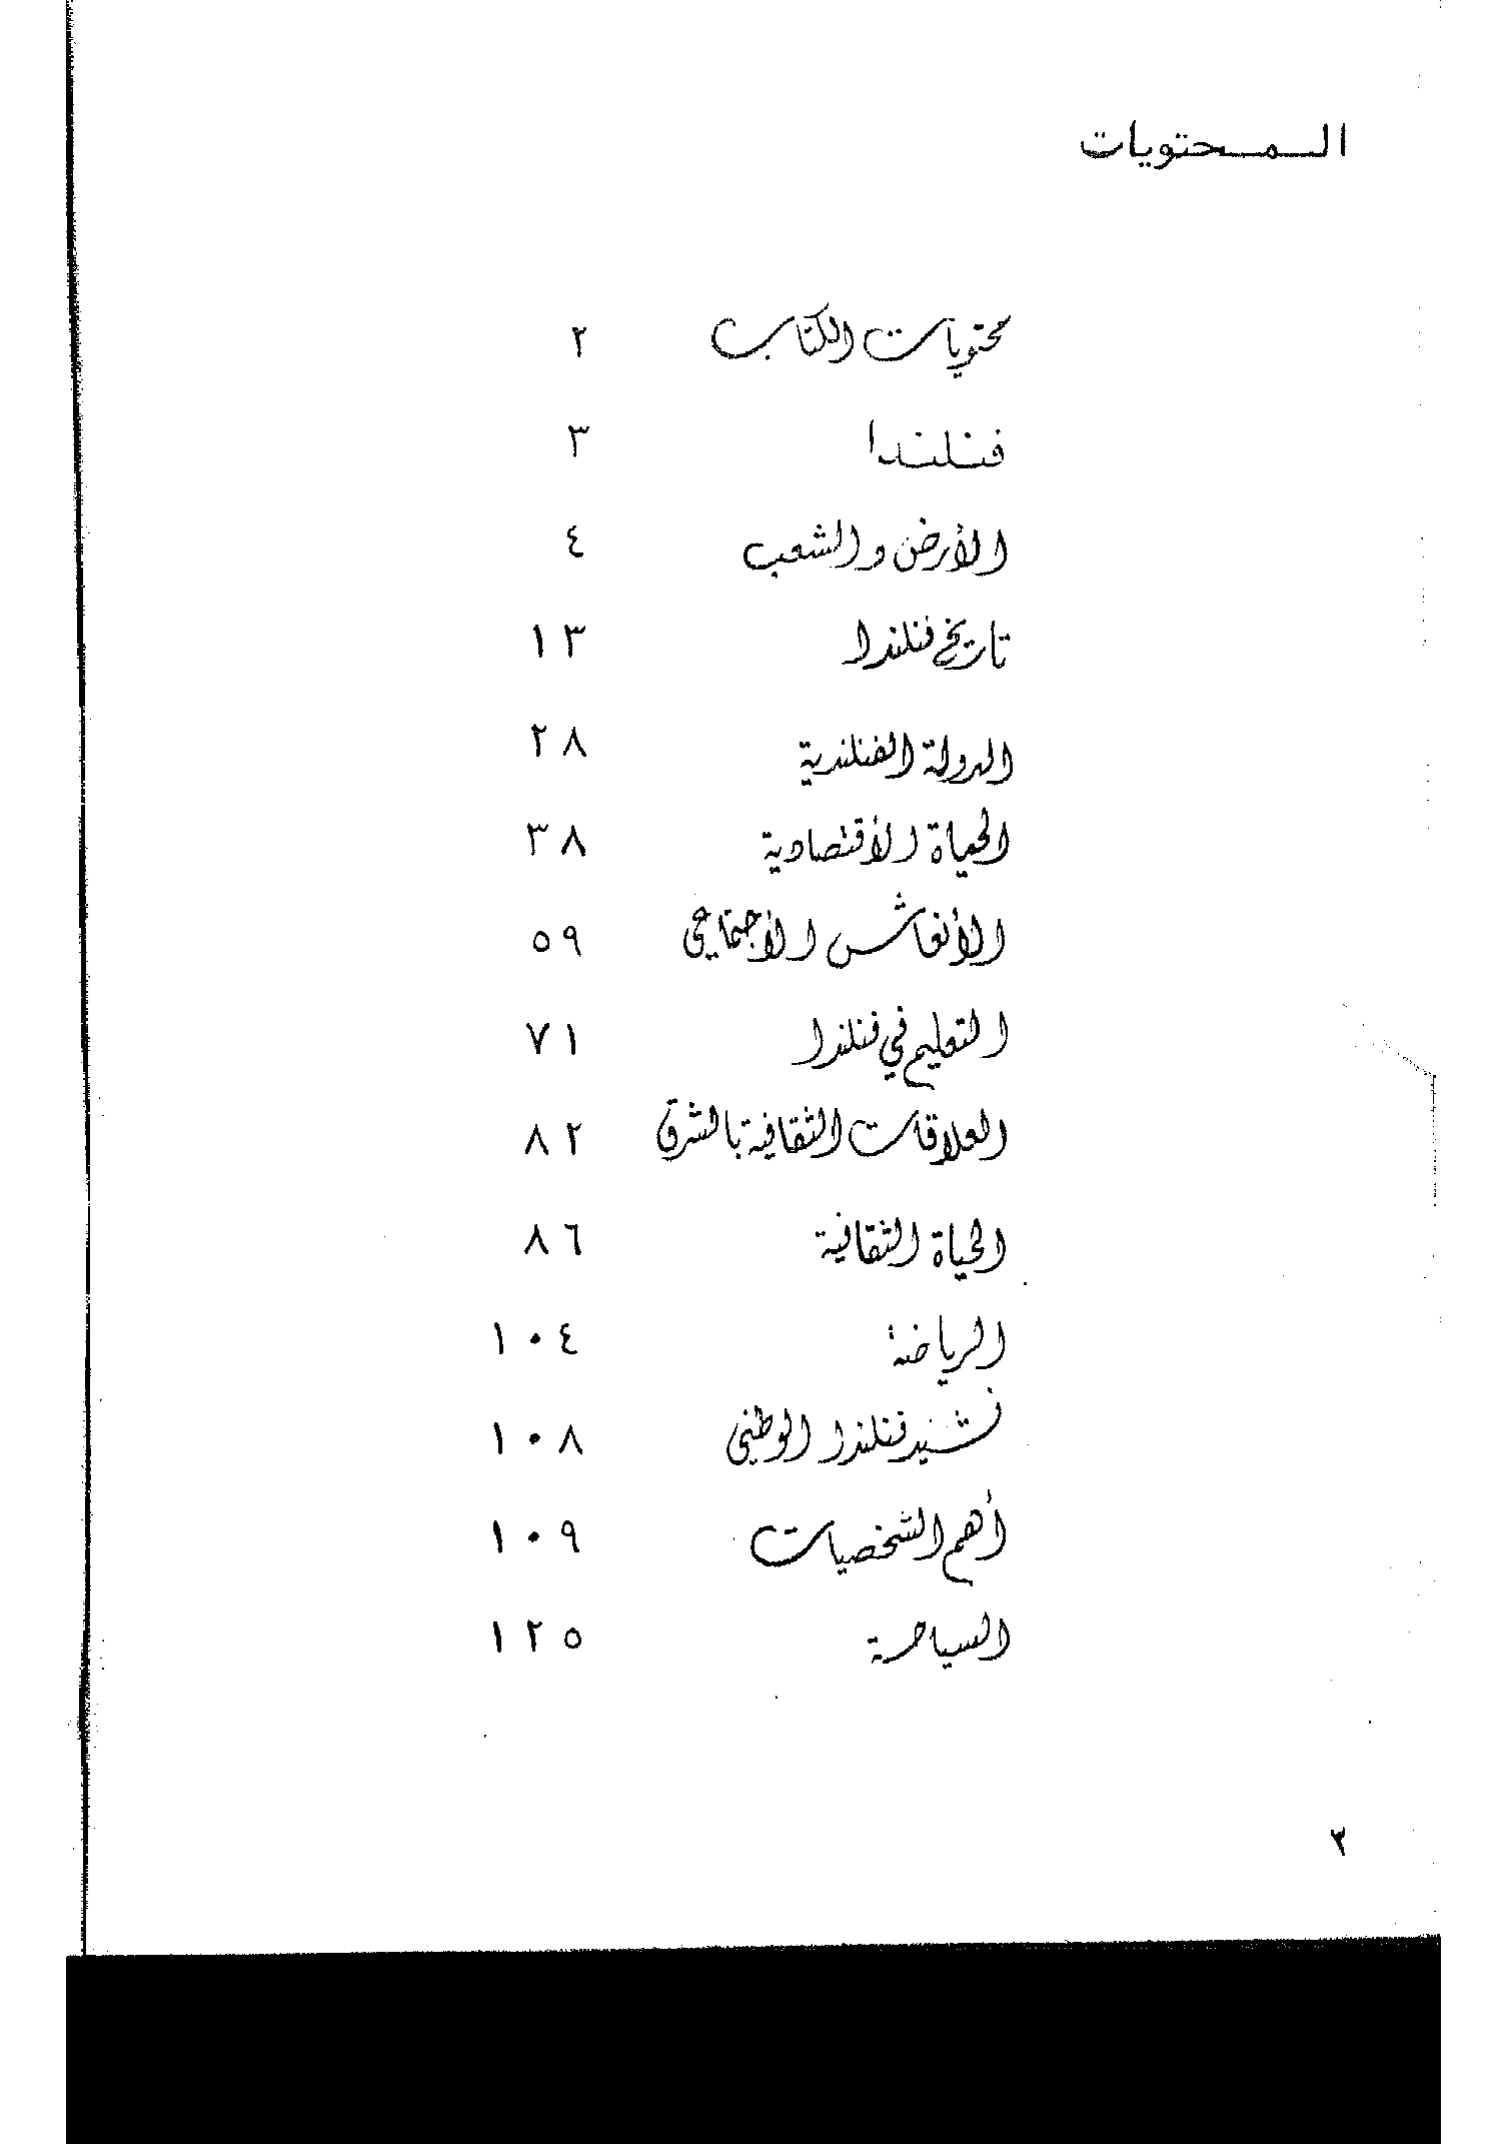 المحتويات
محتويات الكتاب ٢
فنلندا ٣
الأرض والشعب ٤
تاريخ فنلندا ١٣
الدولة الفنلندية ٢٨
الحياة الأقتصادية ٣٨
الأنعاش الأجتماعي ٥٩
التعليم في فنلندا ٧١
العلاقات الثقافية بالشرق ٨٢
الحياة الثقافية ٨٦
الرياضة ١٠٤
نشيد فنلندا الوطني ١٠٨
أهم الشخصيات ١٠٩
السياحة ١٢٥
٣